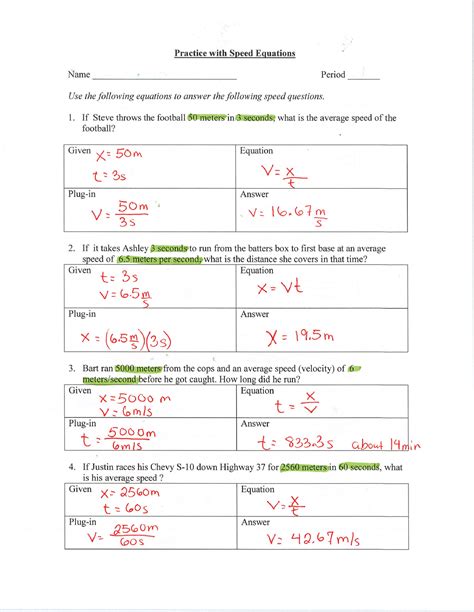 Practice with Speed Equations
Name ____________________ Period ________
Use the following equations to answer the following speed questions.
1. If Steve throws the football 50 meters in 3 seconds, what is the average speed of the
football?
Given x = 50m
t = 3s
Equation
V = x/t
Plug-in
V = 50m/3s
Answer
V = 16.67 m/s
2. If it takes Ashley 3 seconds to run from the batters box to first base at an average
speed of 6.5 meters per second, what is the distance she covers in that time?
Given t = 3s
V = 6.5 m/s
Equation
x = Vt
Plug-in
x = (6.5 m/s)(3s)
Answer
X = 19.5m
3. Bart ran 5000 meters from the cops and an average speed (velocity) of 6
meters/second before he got caught. How long did he run?
Given x = 5000 m
V = 6m/s
Equation
t = x/V
Plug-in
t = 5000m/6m/s
Answer
t = 833.3s about 14min
4. If Justin races his Chevy S-10 down Highway 37 for 2560 meters in 60 seconds, what
is his average speed ?
Given x = 2560m
t = 60s
Equation
V = x/t
Plug-in
V = 2560m/60s
Answer
V = 42.67 m/s